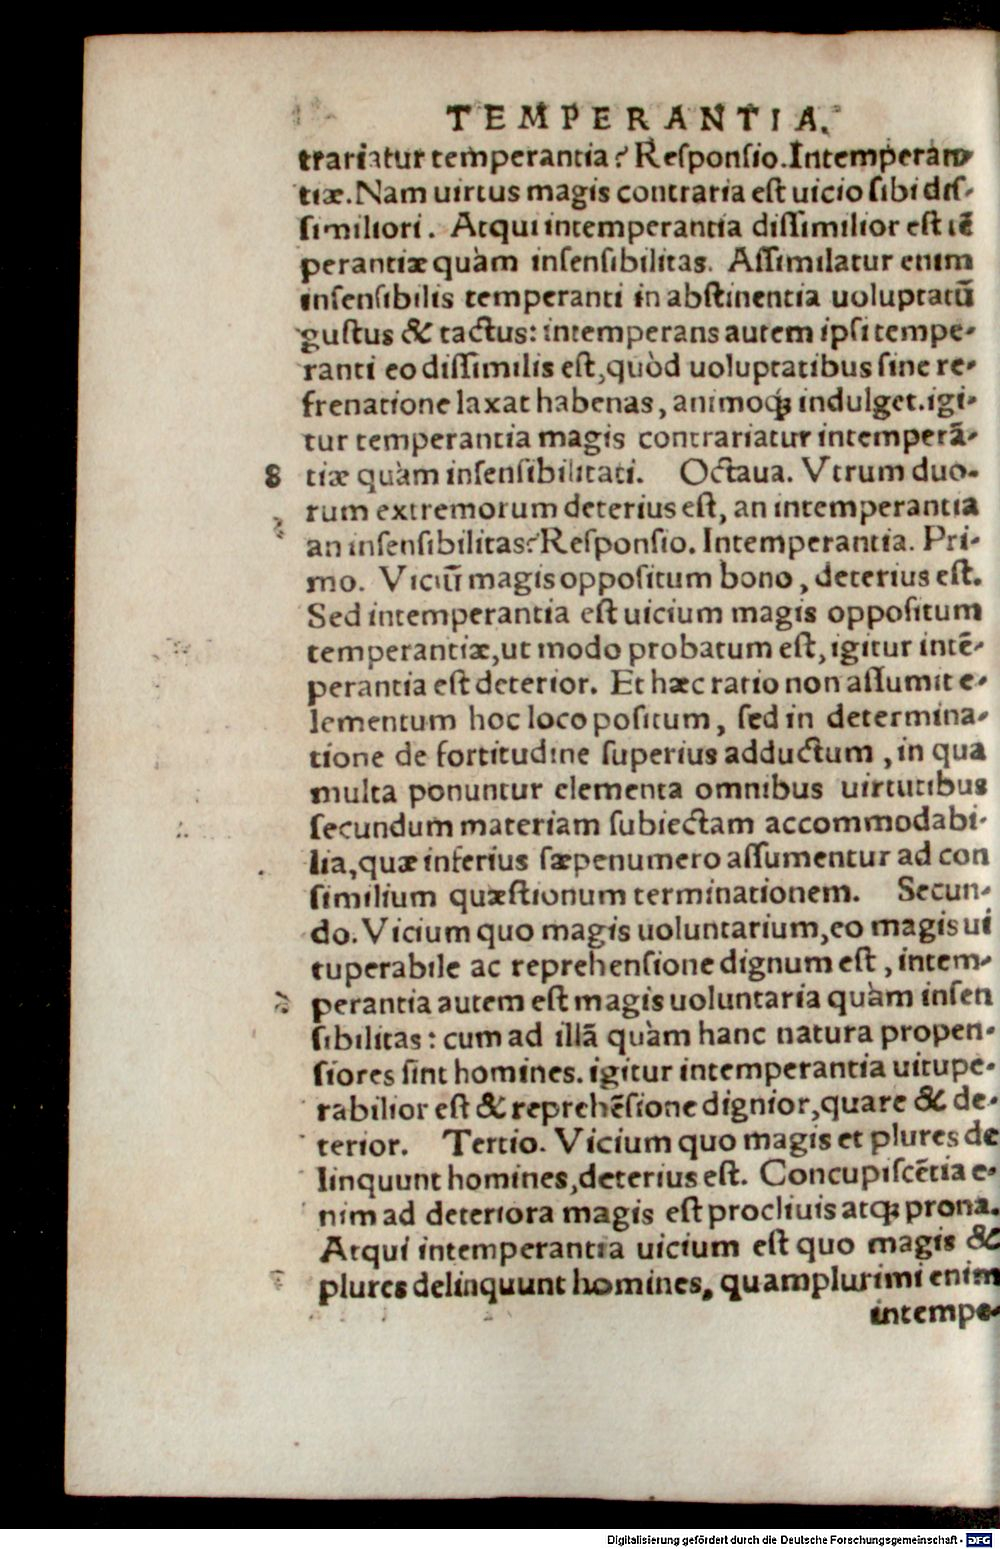 TEMPERANTIA.
trariatur temperantia? Responsio. Intemperan-
tiæ. Nam uirtus magis contraria est uicio sibi dis-
similiori. Atqui intemperantia dissimilior est tẽ
perantiæ quàm insensibilitas. Assimilatur enim
insensibilis temperanti in abstinentia uoluptatũ
gustus & tactus: intemperans autem ipsi tempe-
ranti eo dissimilis est, quòd uoluptatibus sine re-
frenatione laxat habenas, animoqꝫ indulget. igi-
tur temperantia magis contrariatur intemperã-
8 tiæ quàm insensibilitati. Octaua. Vtrum duo-
rum extremorum deterius est, an intemperantia
an insensibilitas? Responsio. Intemperantia. Pri-
mo. Viciũ magis oppositum bono, deterius est.
Sed intemperantia est uicium magis oppositum
temperantiæ, ut modo probatum est, igitur intẽ-
perantia est deterior. Et hæc ratio non assumit e-
lementum hoc loco positum, sed in determina-
tione de fortitudine superius adductum, in qua
multa ponuntur elementa omnibus uirtutibus
secundum materiam subiectam accommodabi-
lia, quæ inferius sæpenumero assumentur ad con
similium quæstionum terminationem. Secun-
do. Vicium quo magis uoluntarium, eo magis ui
tuperabile ac reprehensione dignum est, intem-
perantia autem est magis uoluntaria quàm insen
sibilitas: cum ad illã quàm hanc natura propen-
siores sint homines. igitur intemperantia uitupe-
rabilior est & reprehẽsione dignior, quare & de-
terior. Tertio. Vicium quo magis et plures de
linquunt homines, deterius est. Concupiscẽtia e-
nim ad deteriora magis est procliuis atqꝫ prona.
Atqui intemperantia uicium est quo magis &
plures delinquunt homines, quamplurimi enim
intempe-
Digitalisierung gefördert durch die Deutsche Forschungsgemeinschaft - DFG